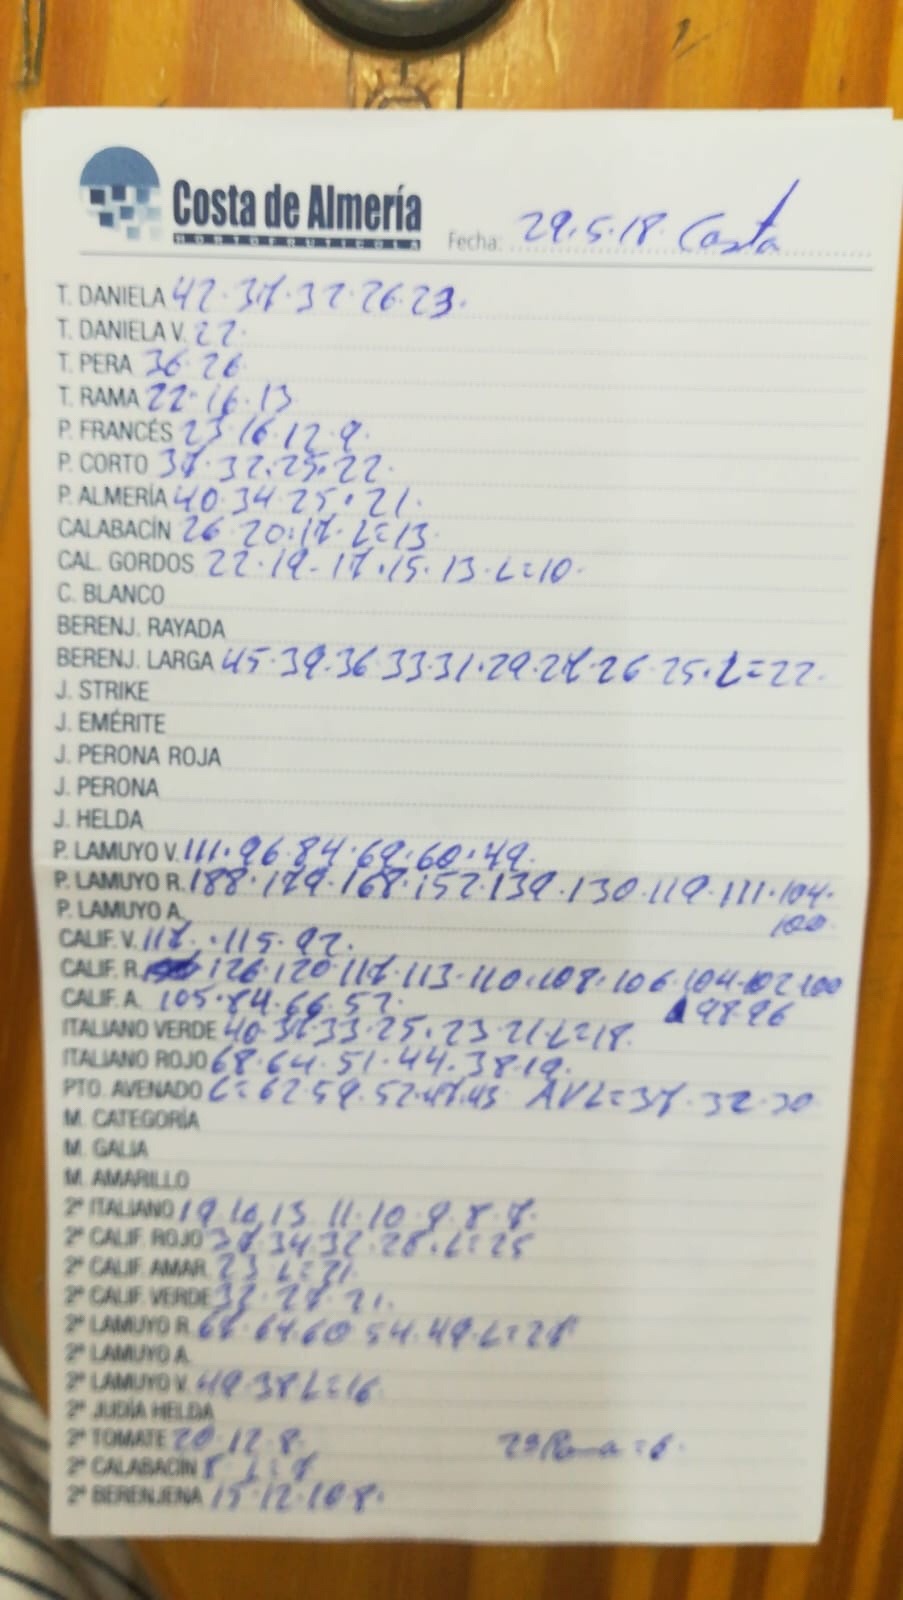 Costa de Almería
HORTOFRUTICOLA
Fecha: 29.5.18. Costa
T. DANIELA 42.37.32.26.23.
T. DANIELA V. 22.
T. PERA 36.26
T. RAMA 22.16.13
P. FRANCÉS 23.16.12.9.
P. CORTO 37.32.25.22.
P. ALMERÍA 40.34.25.21.
CALABACÍN 26.20.17.L=13.
CAL. GORDOS 22.19-17.15.13.L=10.
C. BLANCO
BERENJ. RAYADA
BERENJ. LARGA 45.39.36.33.31.29.27.26.25.L=22.
J. STRIKE
J. EMÉRITE
J. PERONA ROJA
J. PERONA
J. HELDA
P. LAMUYO V. 111.96.84.69.60.49.
P. LAMUYO R. 188.179.168.152.139.130.119.111.104.
100
P. LAMUYO A.
CALIF. V. 117.115.92.
CALIF. R. 126.120.117.113.110.108.106.104.102.100
98.96
CALIF. A. 105.84.66.52.
ITALIANO VERDE 40.37.33.25.23.21.L=18.
ITALIANO ROJO 68.64.51.44.38.19.
PTO. AVENADO L=62.59.52.47.43 AVL=37.32.30
M. CATEGORÍA
M. GALIA
M. AMARILLO
2ª ITALIANO 19.16.13.11.10.9.8.7.
2ª CALIF. ROJO 37.34.32.28.L=25
2ª CALIF. AMAR. 23.L=21.
2ª CALIF. VERDE 32.27.21.
2ª LAMUYO R. 64.60.54.49.L=28
2ª LAMUYO A.
2ª LAMUYO V. 49.38.L=16.
2ª JUDÍA HELDA
2ª TOMATE 20.12.8. 2ª Rama=6.
2ª CALABACÍN 8.L=7
2ª BERENJENA 15.12.10.8.